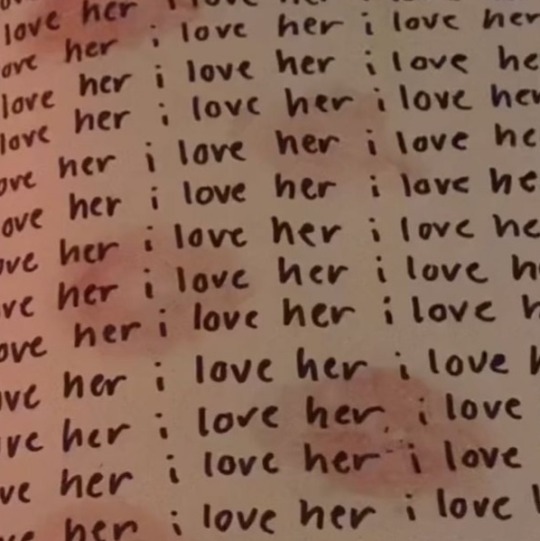 love her i love her i love her
love her i love her i love her
love her i love her i love he
love her i love her i love her
ove her i love her i love he
ove her i love her i love he
ove her i love her i love he
ve her i love her i love h
ove her i love her i love h
ve her i love her i love h
ve her i love her, i love
ve her i love her i love
her i love her i love